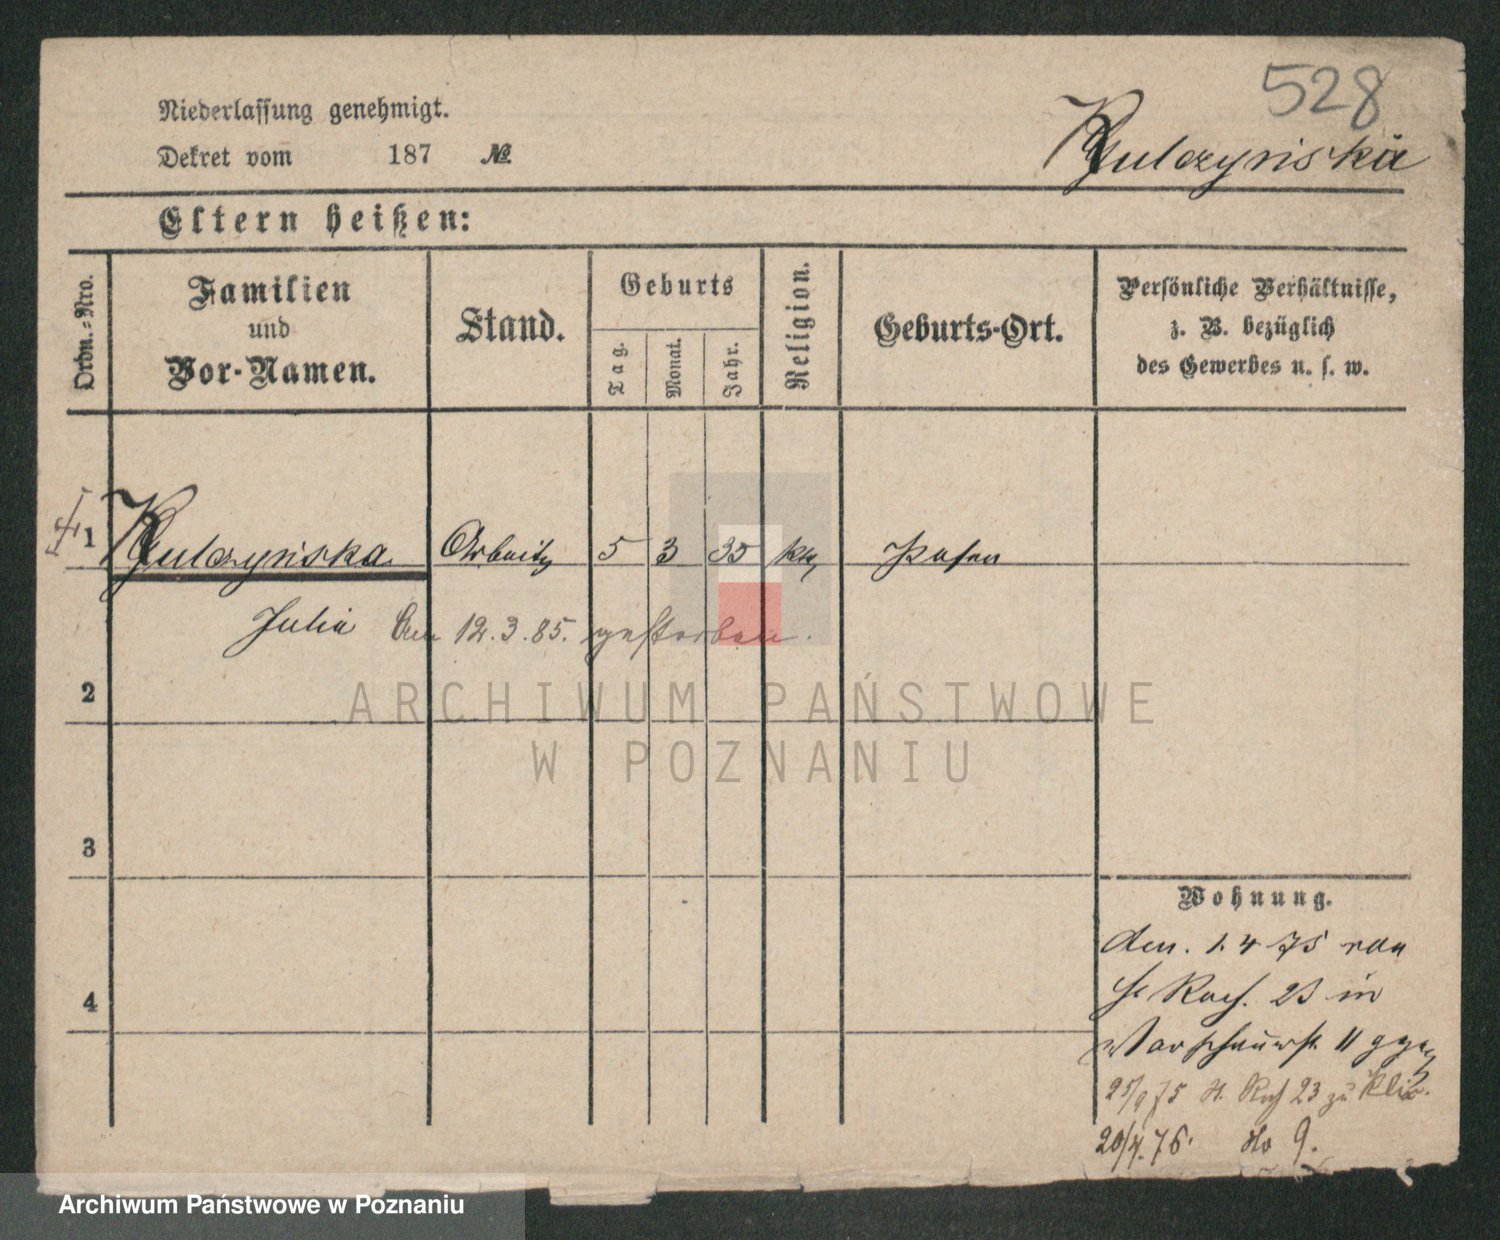 528
Niederlassung genehmigt.
Dekret vom 187 №
Kulczyńska
Eltern heißen:
Ordn.-Nro.
Familien
und
Vor-Namen.
Stand.
Geburts
Tag.
Monat.
Jahr.
Religion.
Geburts-Ort.
Persönliche Verhältnisse,
z. B. bezüglich
des Gewerbes u. s. w.
1 Kulczyńska 5 3 35 Posen
Julia 12.3.85. gestorben.
2
3
4
Wohnung.
den. 1. 4 75 von
Roch. 23 in
Warschauerst. 11
25/9 75 St. Roch 23 zu
20/4.76. 9.
ARCHIWUM PAŃSTWOWE
W POZNANIU
Archiwum Państwowe w Poznaniu